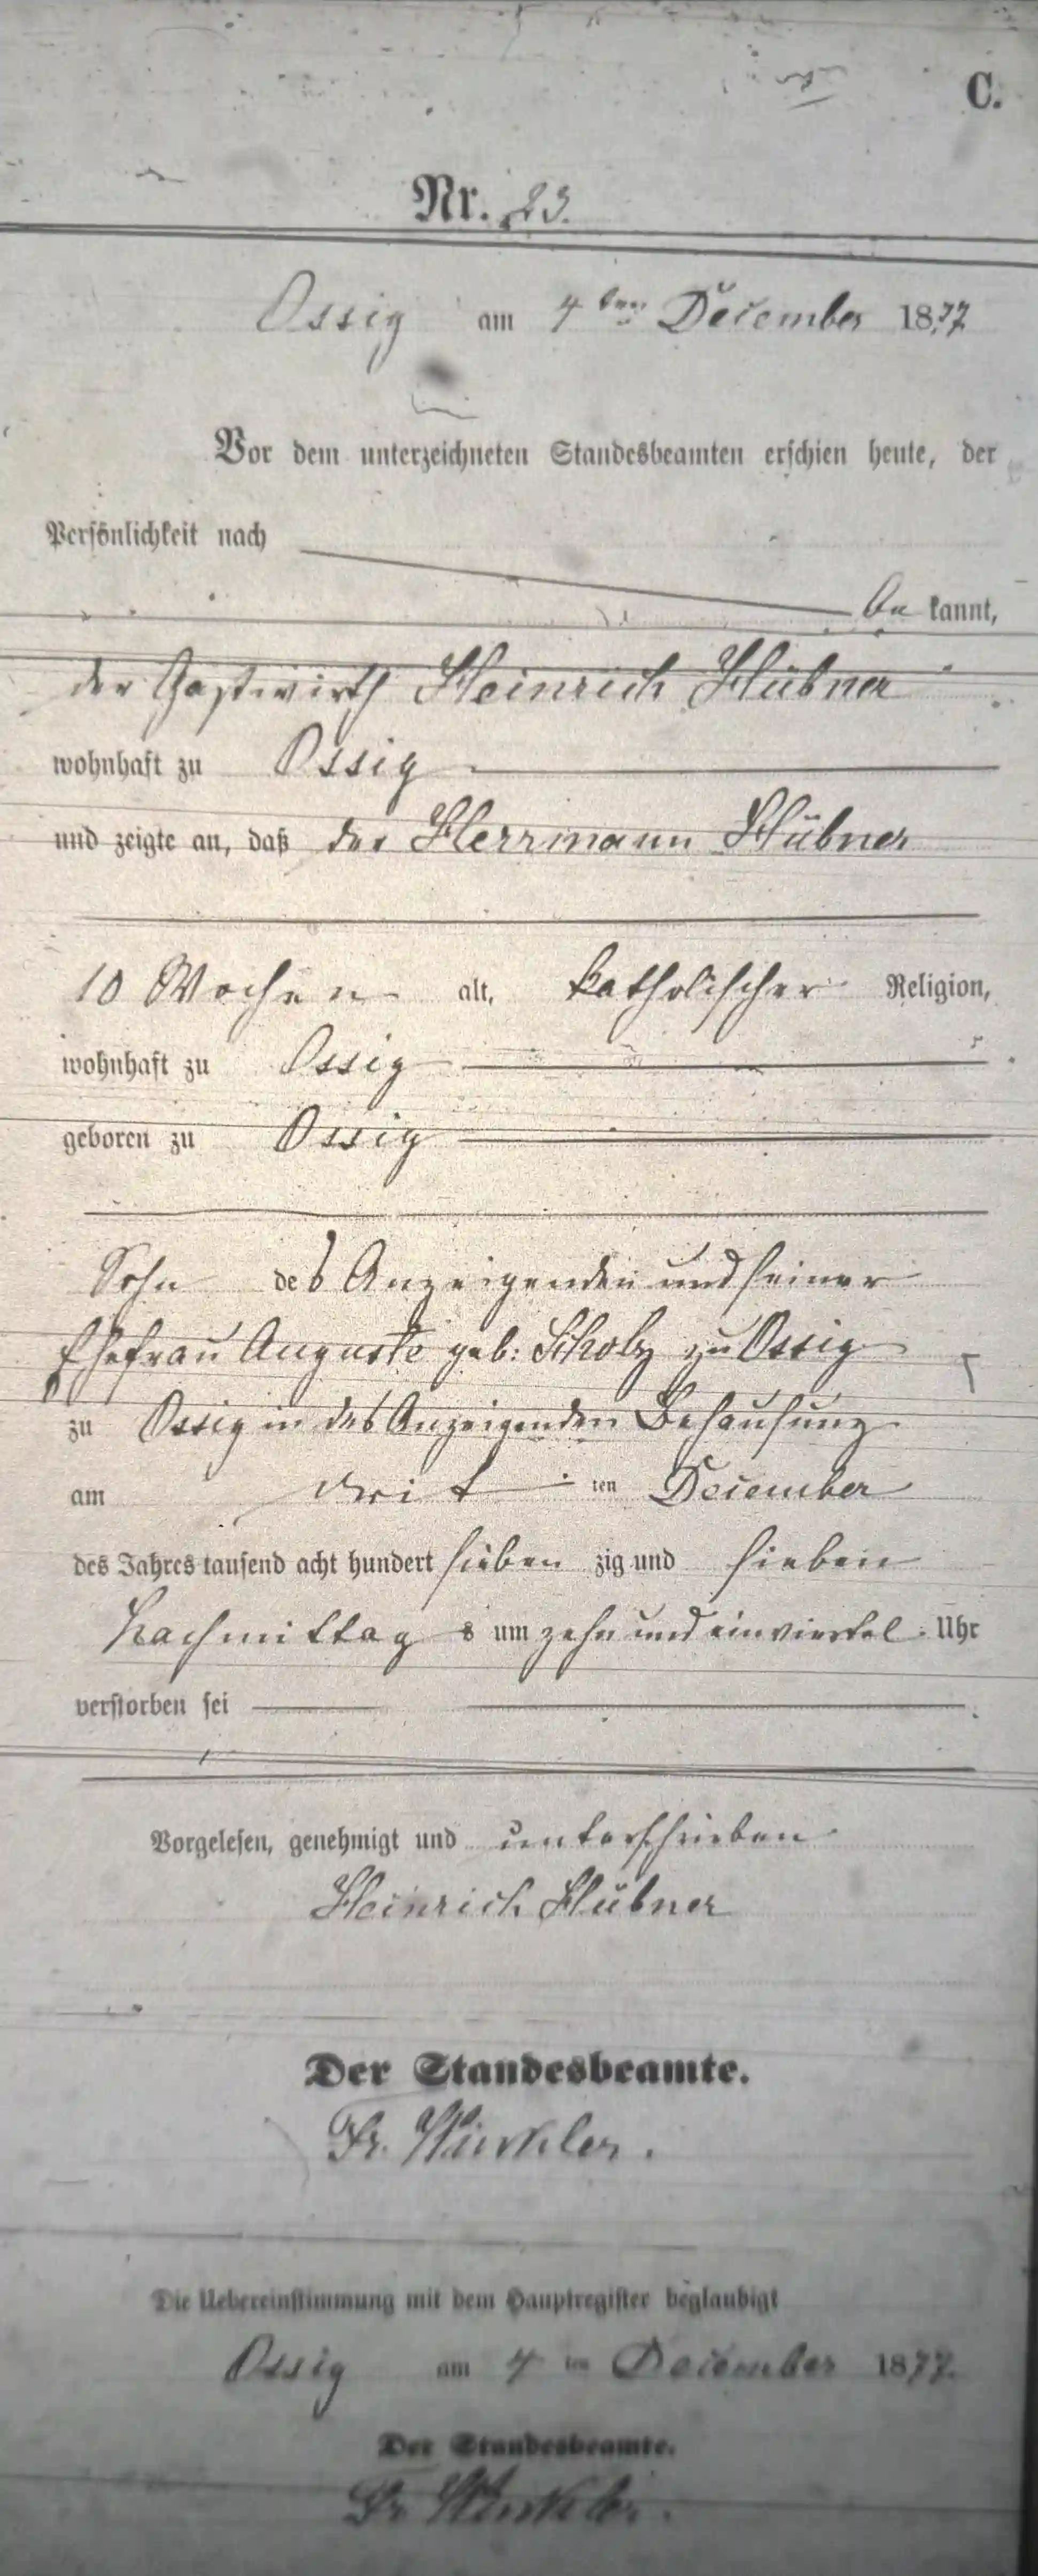 C.
Nr. 23.
Ossig am 4ten December 1877
Vor dem unterzeichneten Standesbeamten erschien heute, der
Persönlichkeit nach
be kannt,
der Gastwirth Heinrich Hübner
wohnhaft zu Ossig
und zeigte an, daß der Herrmann Hübner
10 Wochen alt, katholischer Religion,
wohnhaft zu Ossig
geboren zu Ossig
Sohn des Anzeigenden und seiner
Ehefrau Auguste geb: Scholz zu Ossig
zu Ossig in des Anzeigenden Behausung
am drit ten December
des Jahres tausend acht hundert sieben zig und sieben
Nachmittag s um zehn und einviertel Uhr
verstorben sei
Vorgelesen, genehmigt und unterschrieben
Heinrich Hübner
Der Standesbeamte.
Fr. Winkler.
Die Uebereinstimmung mit dem Hauptregister beglaubigt
Ossig am 4 ten December 1877.
Der Standesbeamte.
Fr Winkler.